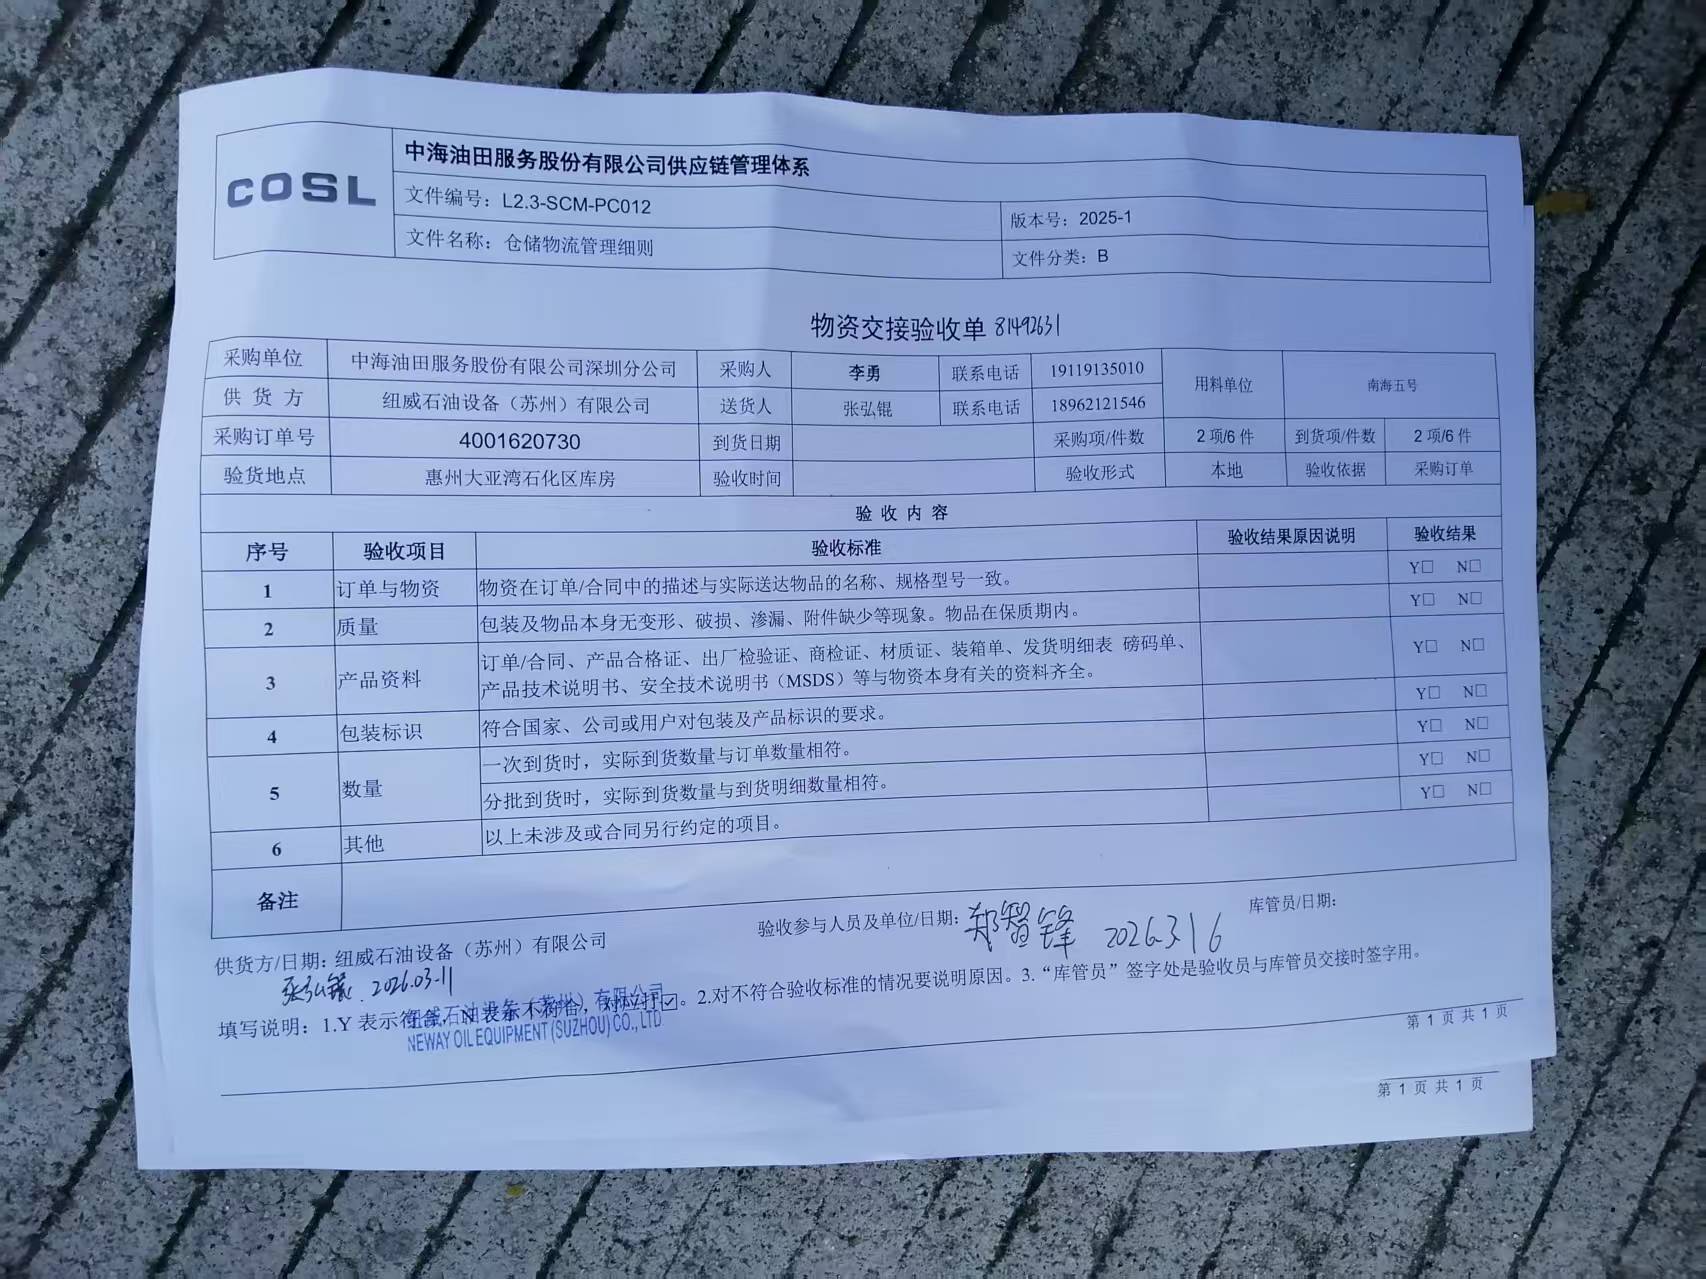 COSL
中海油田服务股份有限公司供应链管理体系
文件编号：L2.3-SCM-PC012 版本号：2025-1
文件名称：仓储物流管理细则 文件分类：B
物资交接验收单 81492631
采购单位 中海油田服务股份有限公司深圳分公司 采购人 李勇 联系电话 19119135010 用料单位 南海五号
供货方 纽威石油设备（苏州）有限公司 送货人 张弘锟 联系电话 18962121546
采购订单号 4001620730 到货日期 采购项/件数 2 项/6 件 到货项/件数 2 项/6 件
验货地点 惠州大亚湾石化区库房 验收时间 验收形式 本地 验收依据 采购订单
验收内容
序号 验收项目 验收标准 验收结果原因说明 验收结果
1 订单与物资 物资在订单/合同中的描述与实际送达物品的名称、规格型号一致。 Y□ N□
2 质量 包装及物品本身无变形、破损、渗漏、附件缺少等现象。物品在保质期内。 Y□ N□
3 产品资料 订单/合同、产品合格证、出厂检验证、商检证、材质证、装箱单、发货明细表 磅码单、
产品技术说明书、安全技术说明书（MSDS）等与物资本身有关的资料齐全。 Y□ N□
4 包装标识 符合国家、公司或用户对包装及产品标识的要求。 Y□ N□
5 数量 一次到货时，实际到货数量与订单数量相符。 Y□ N□
分批到货时，实际到货数量与到货明细数量相符。 Y□ N□
6 其他 以上未涉及或合同另行约定的项目。 Y□ N□
备注
供货方/日期：纽威石油设备（苏州）有限公司 验收参与人员及单位/日期：郑智锋 2026.3.16 库管员/日期：
张弘锟．2026.03-11
填写说明：1.Y 表示符合，N 表示不符合，对应打☑。2.对不符合验收标准的情况要说明原因。3.“库管员”签字处是验收员与库管员交接时签字用。
纽威石油设备（苏州）有限公司
NEWAY OIL EQUIPMENT (SUZHOU) CO., LTD
第 1 页 共 1 页
第 1 页 共 1 页